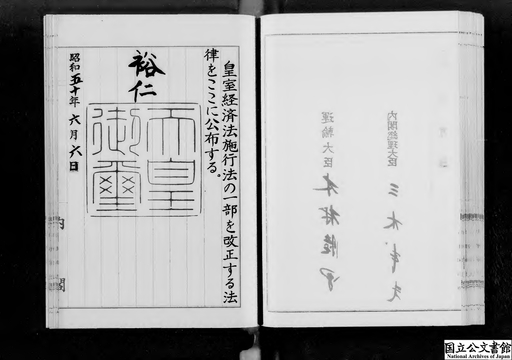 内閣総理大臣
三木武夫
運輸大臣
木村睦男
皇室経済法施行法の一部を改正する法
律をここに公布する。
裕仁
天皇
御璽
昭和五十年六月六日
内閣
国立公文書館
National Archives of Japan